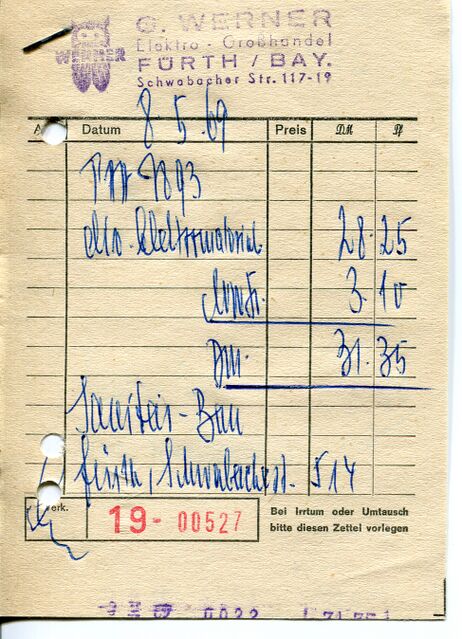 WERNER
G. WERNER
Elektro - Großhandel
FÜRTH / BAY.
Schwabacher Str. 117-19
Datum 8. 5. 69 Preis DM Pf
7893
div. Elektromaterial 28.25
Mwst. 3.10
DM. 31.35
Sanitär-Bau
Fürth, Schwabacherst. 514
erk.
19- 00527
Bei Irrtum oder Umtausch
bitte diesen Zettel vorlegen
0022